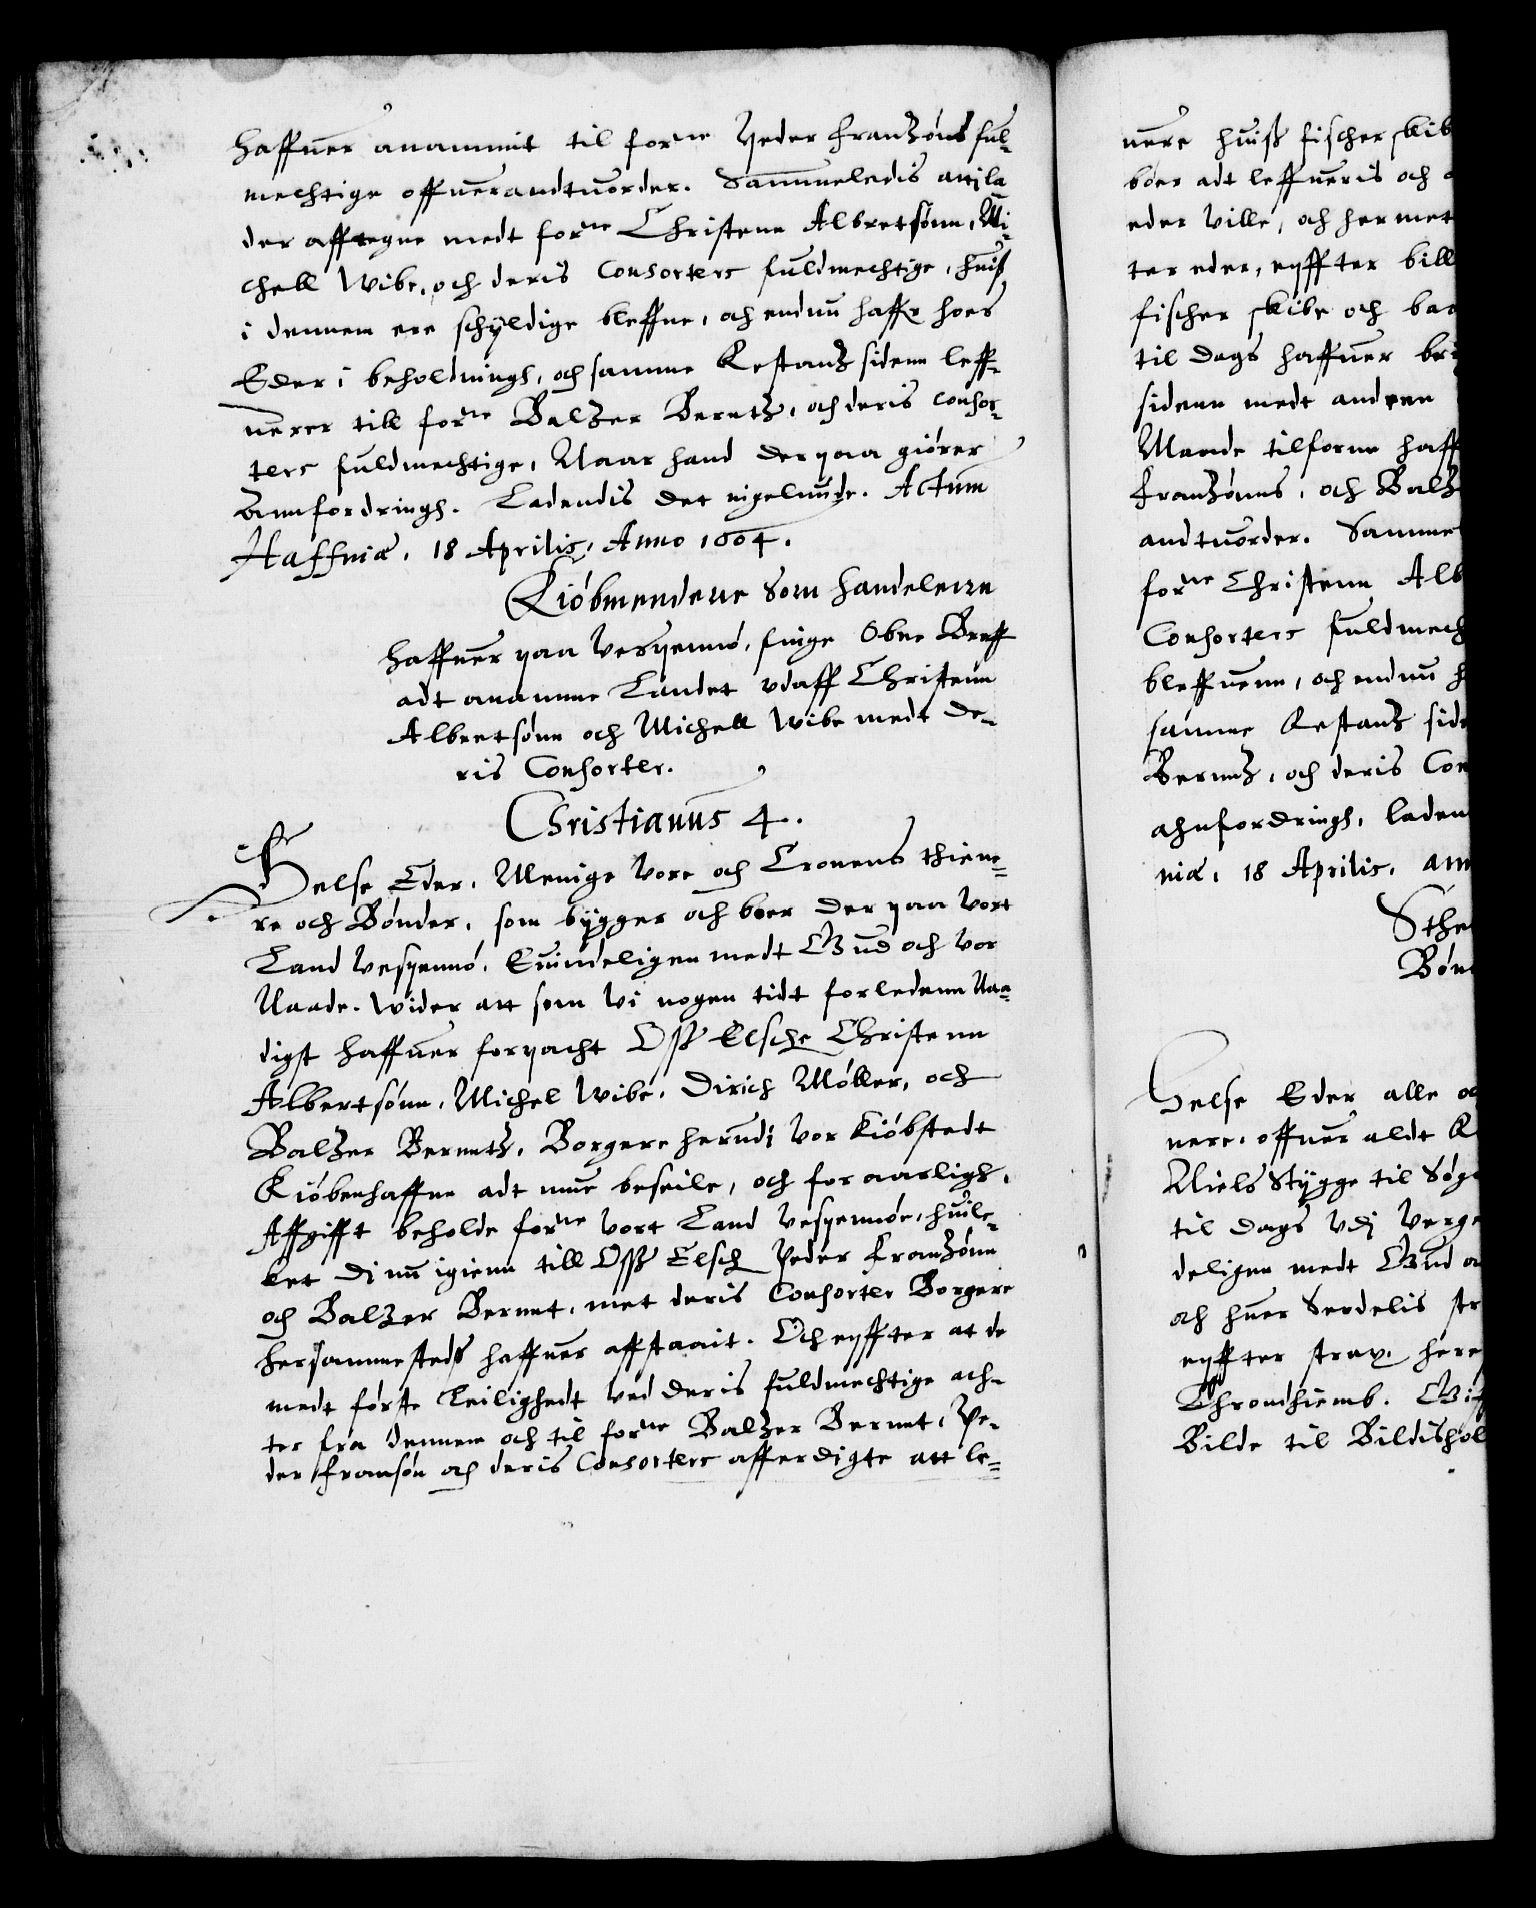 haffuer anammit til forne Peder Franzøns ful-
mechtige offuerandtuorder. Sammeledis att j la-
der afftegne medt forne Christenn Albretsønn, Mi-
chell Wibe, och deris Consorters fuldmechtige, huiß
i dennem ere schyldige bleffne, och endnu haffr hoes
Eder i beholdningh, och samme Restantz sidenn leff-
uerer till forne Baltzer Berntz, och deris Consor-
ters fuldmechtige, Naar hand der paa giører
Annfordringh. Ladendis det ingelunde. Actum
Haffniæ, 18 Aprilis, Anno 1604.
Kiøbmendene som handelenn
haffuer paa Vespennø, finge Obne Breff
adt anamme Landet vdaff Christenn
Albretsønn och Michell Wibe medt de-
ris Consorter.
Christianus 4.
Helse Eder, Menige vore och Cronens thiene-
re och Bønder, som bygger och boer der paa vort
Land Vespennø, Euindeligen medt Gud och vor
Naade. Wider att som Vi nogen tidt forledenn Naa-
digst haffuer forpacht Oss Elsche Christenn
Albertsønn, Michel Wibe, Dirich Møller, och
Baltzer Berentz, Borgere herudi vor Kiøbstedt
Kiøbenhaffne adt mue beseile, och for aarligh,
Affgifft beholde forne vort Land Vespennøe, huile-
ket di nu igienn till Oss Elsch Peder Franzønn
och Baltzer Bernt, met deris Consorter Borgere
hersammesteds haffuer affstaait. Och epffter at de
medt første Leilighedt ved deris fuldmechtige ach-
ter fra dennem och til forne Baltzer Bernt, Pe-
der Fransøn och deris Consorters afferdigte att le-
uere huiß fischer skib
boer adt leffueris och
eder ville, och her met
ter eder, epffter bill
fischer skibe och baa
til dags haffuer
sidenn medt andren
Maade tilforne haff
Franzønns, och Baltz
andtuorder. Samme
forne Christenn Alb
Consorters fuldmech
bleffuenn, och endnu h
samme Restantz side
Berentz, och deris Con
ahnfordringh, laden
niæ, 18 Aprilis, ann
Sthe
Bøn
Helse Eder alle oc
nere, offuer aldt
Niels Stygge til Søg
til dags vdj Verge
deligen medt Gud oc
och huer Serdelis str
epffter strax, here
Throndhiemb. Gif
Bilde til Bildishol